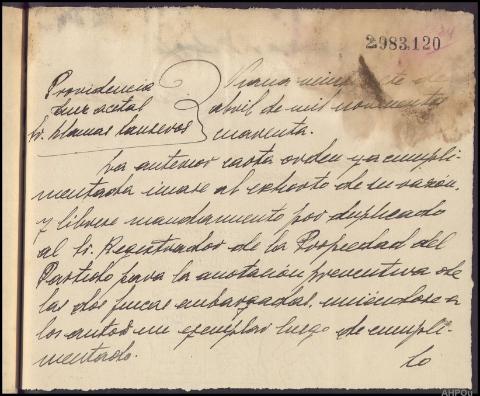 2983,120
Providencia
Juez acctal
Sr. Llamas Lanseros
Viana veintisiete de
abril de mil novecientos
cuarenta.
La anterior carta orden ya cumpli-
mentada únase al exhorto de su razón,
y líbrese mandamiento por duplicado
al Sr. Registrador de la Propiedad del
Partido para la anotación preventiva de
las dos fincas embargadas, uniéndose a
los autos un ejemplar luego de cumpli-
mentado.
Lo
AHPOu